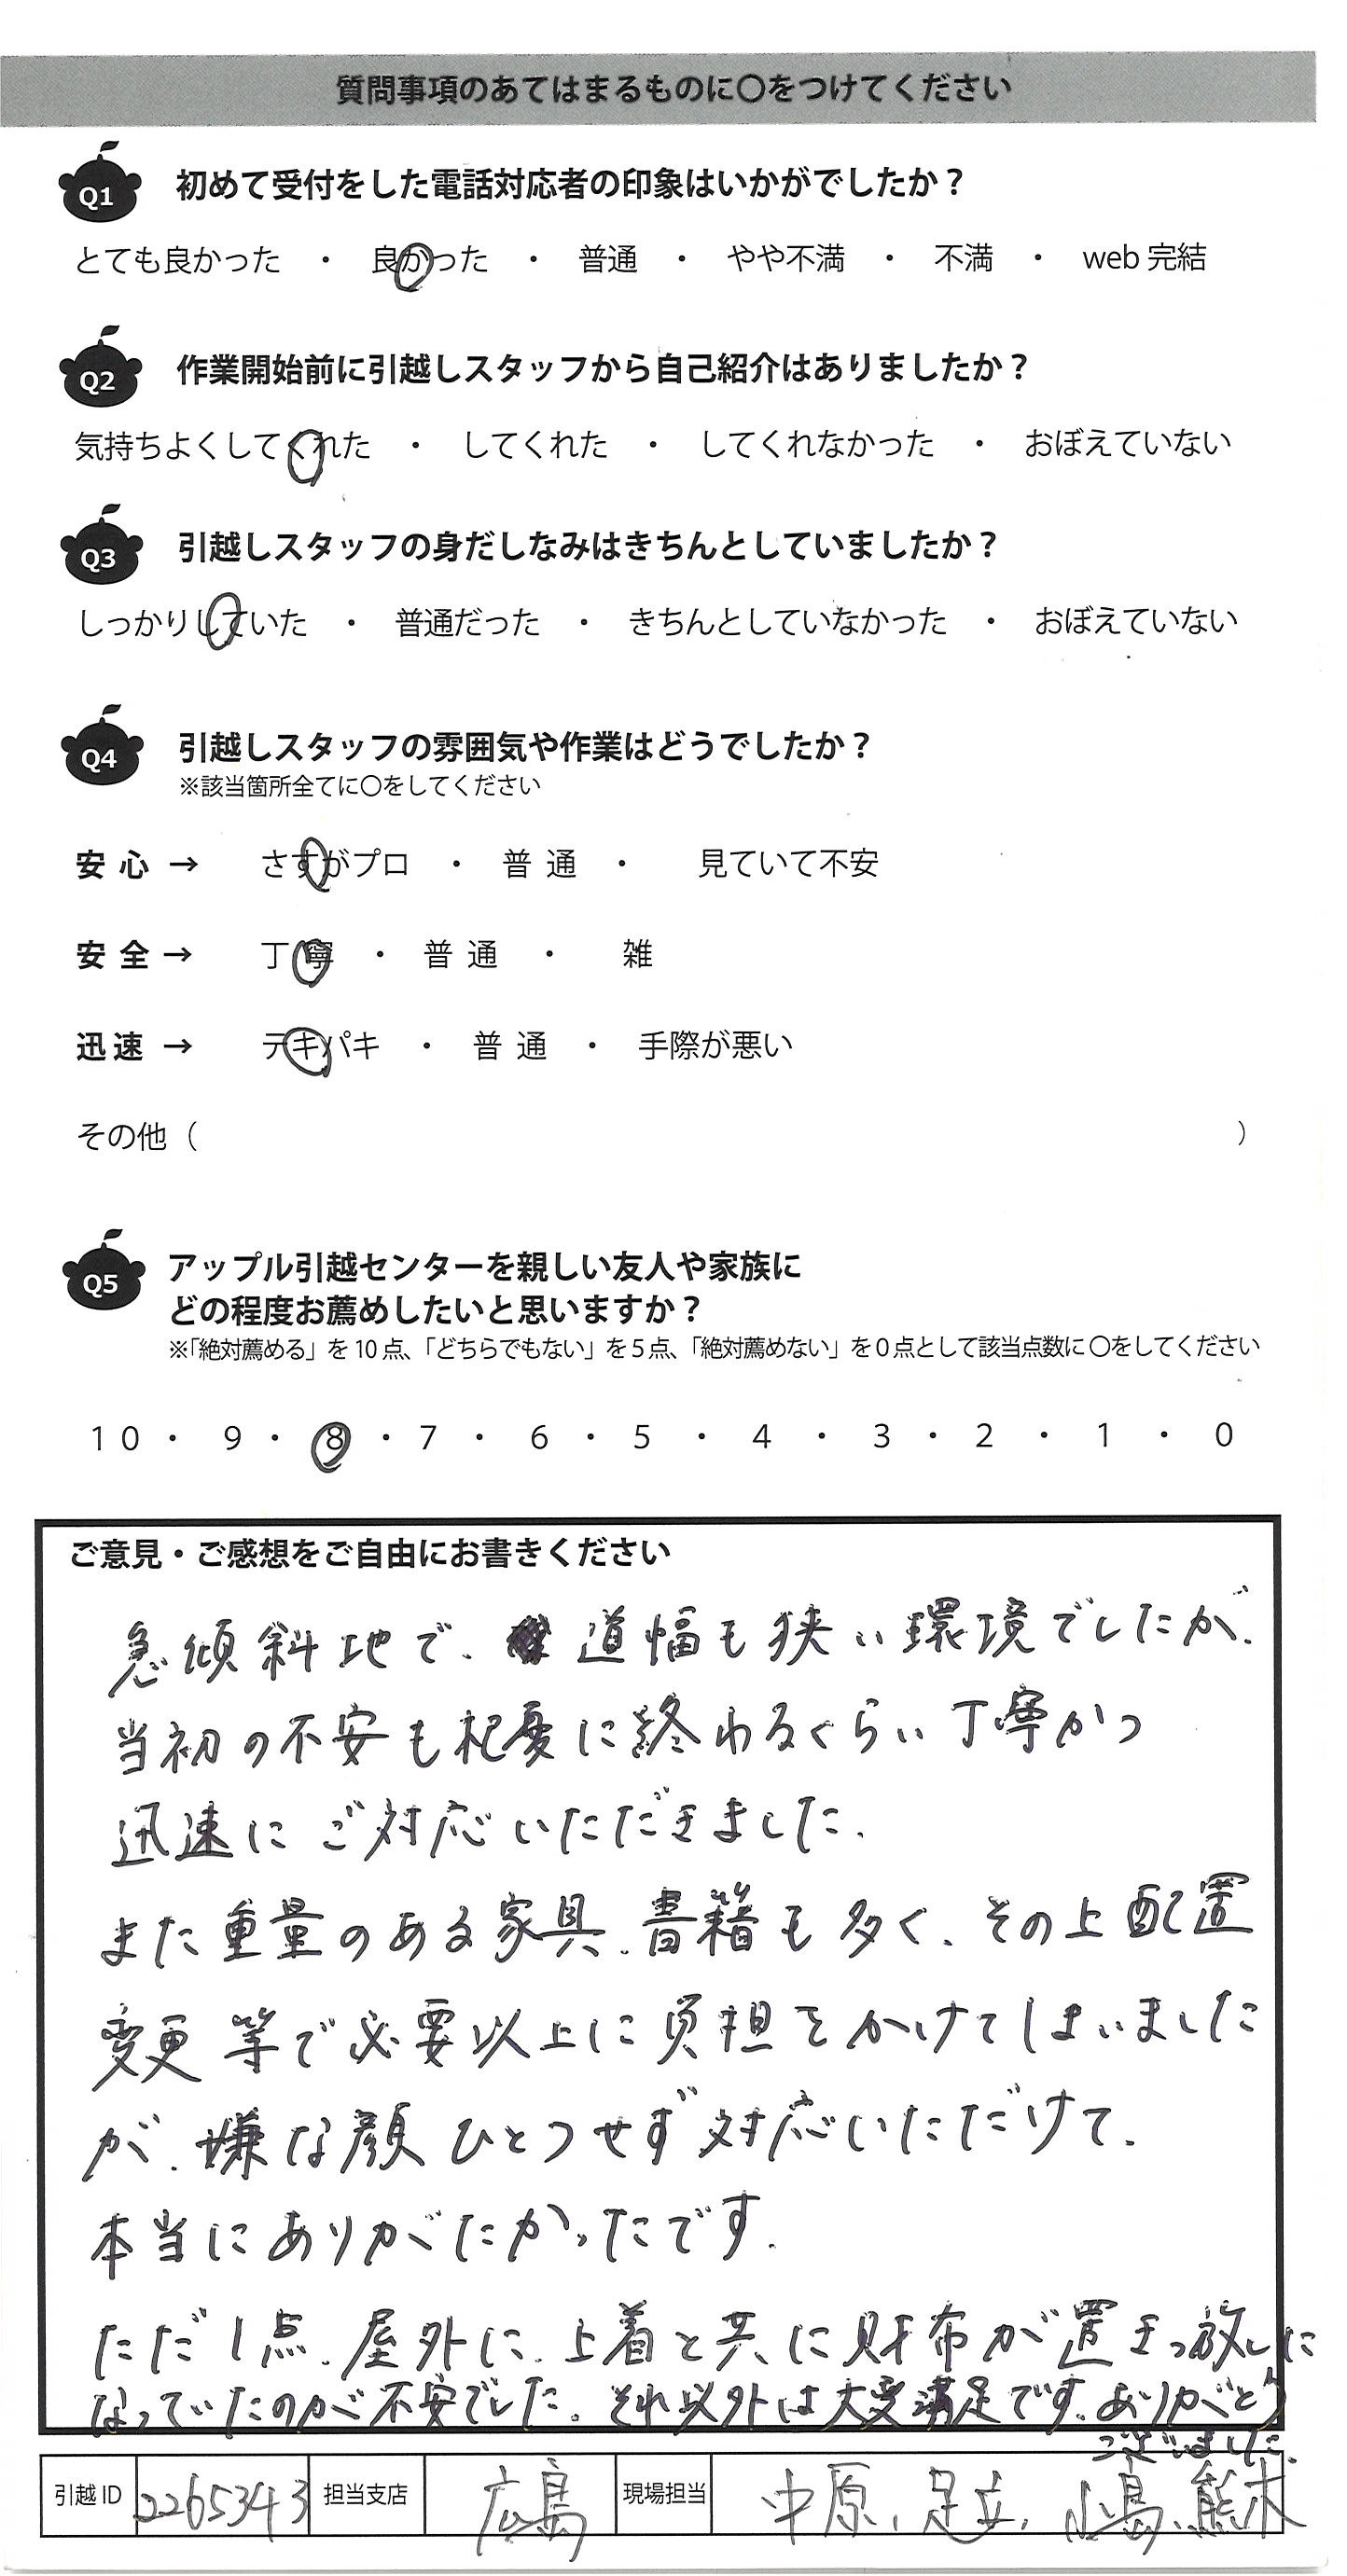 質問事項のあてはまるものに〇をつけてください
Q1 初めて受付をした電話対応者の印象はいかがでしたか？
とても良かった ・ 良かった ・ 普通 ・ やや不満 ・ 不満 ・ web 完結
Q2 作業開始前に引越しスタッフから自己紹介はありましたか？
気持ちよくしてくれた ・ してくれた ・ してくれなかった ・ おぼえていない
Q3 引越しスタッフの身だしなみはきちんとしていましたか？
しっかりしていた ・ 普通だった ・ きちんとしていなかった ・ おぼえていない
Q4 引越しスタッフの雰囲気や作業はどうでしたか？
※該当箇所全てに〇をしてください
安心 → さすがプロ ・ 普通 ・ 見ていて不安
安全 → 丁寧 ・ 普通 ・ 雑
迅速 → テキパキ ・ 普通 ・ 手際が悪い
その他（ ）
Q5 アップル引越センターを親しい友人や家族に
どの程度お薦めしたいと思いますか？
※「絶対薦める」を10点、「どちらでもない」を5点、「絶対薦めない」を0点として該当点数に〇をしてください
10 ・ 9 ・ 8 ・ 7 ・ 6 ・ 5 ・ 4 ・ 3 ・ 2 ・ 1 ・ 0
ご意見・ご感想をご自由にお書きください
急傾斜地で、道幅も狭い環境でしたが、
当初の不安も杞憂に終わるくらい丁寧かつ
迅速にご対応いただきました。
また重量のある家具、書籍も多く、その上配置
変更等で必要以上に負担をかけてしまいました
が、嫌な顔ひとつせず対応いただけて、
本当にありがたかったです。
ただ1点、屋外に、上着と共に財布が置きっ放しに
なっていたのが不安でした。それ以外は大変満足です。ありがとう
ございました。
引越ID 2265343 担当支店 広島 現場担当 中原、足立、小島、熊木